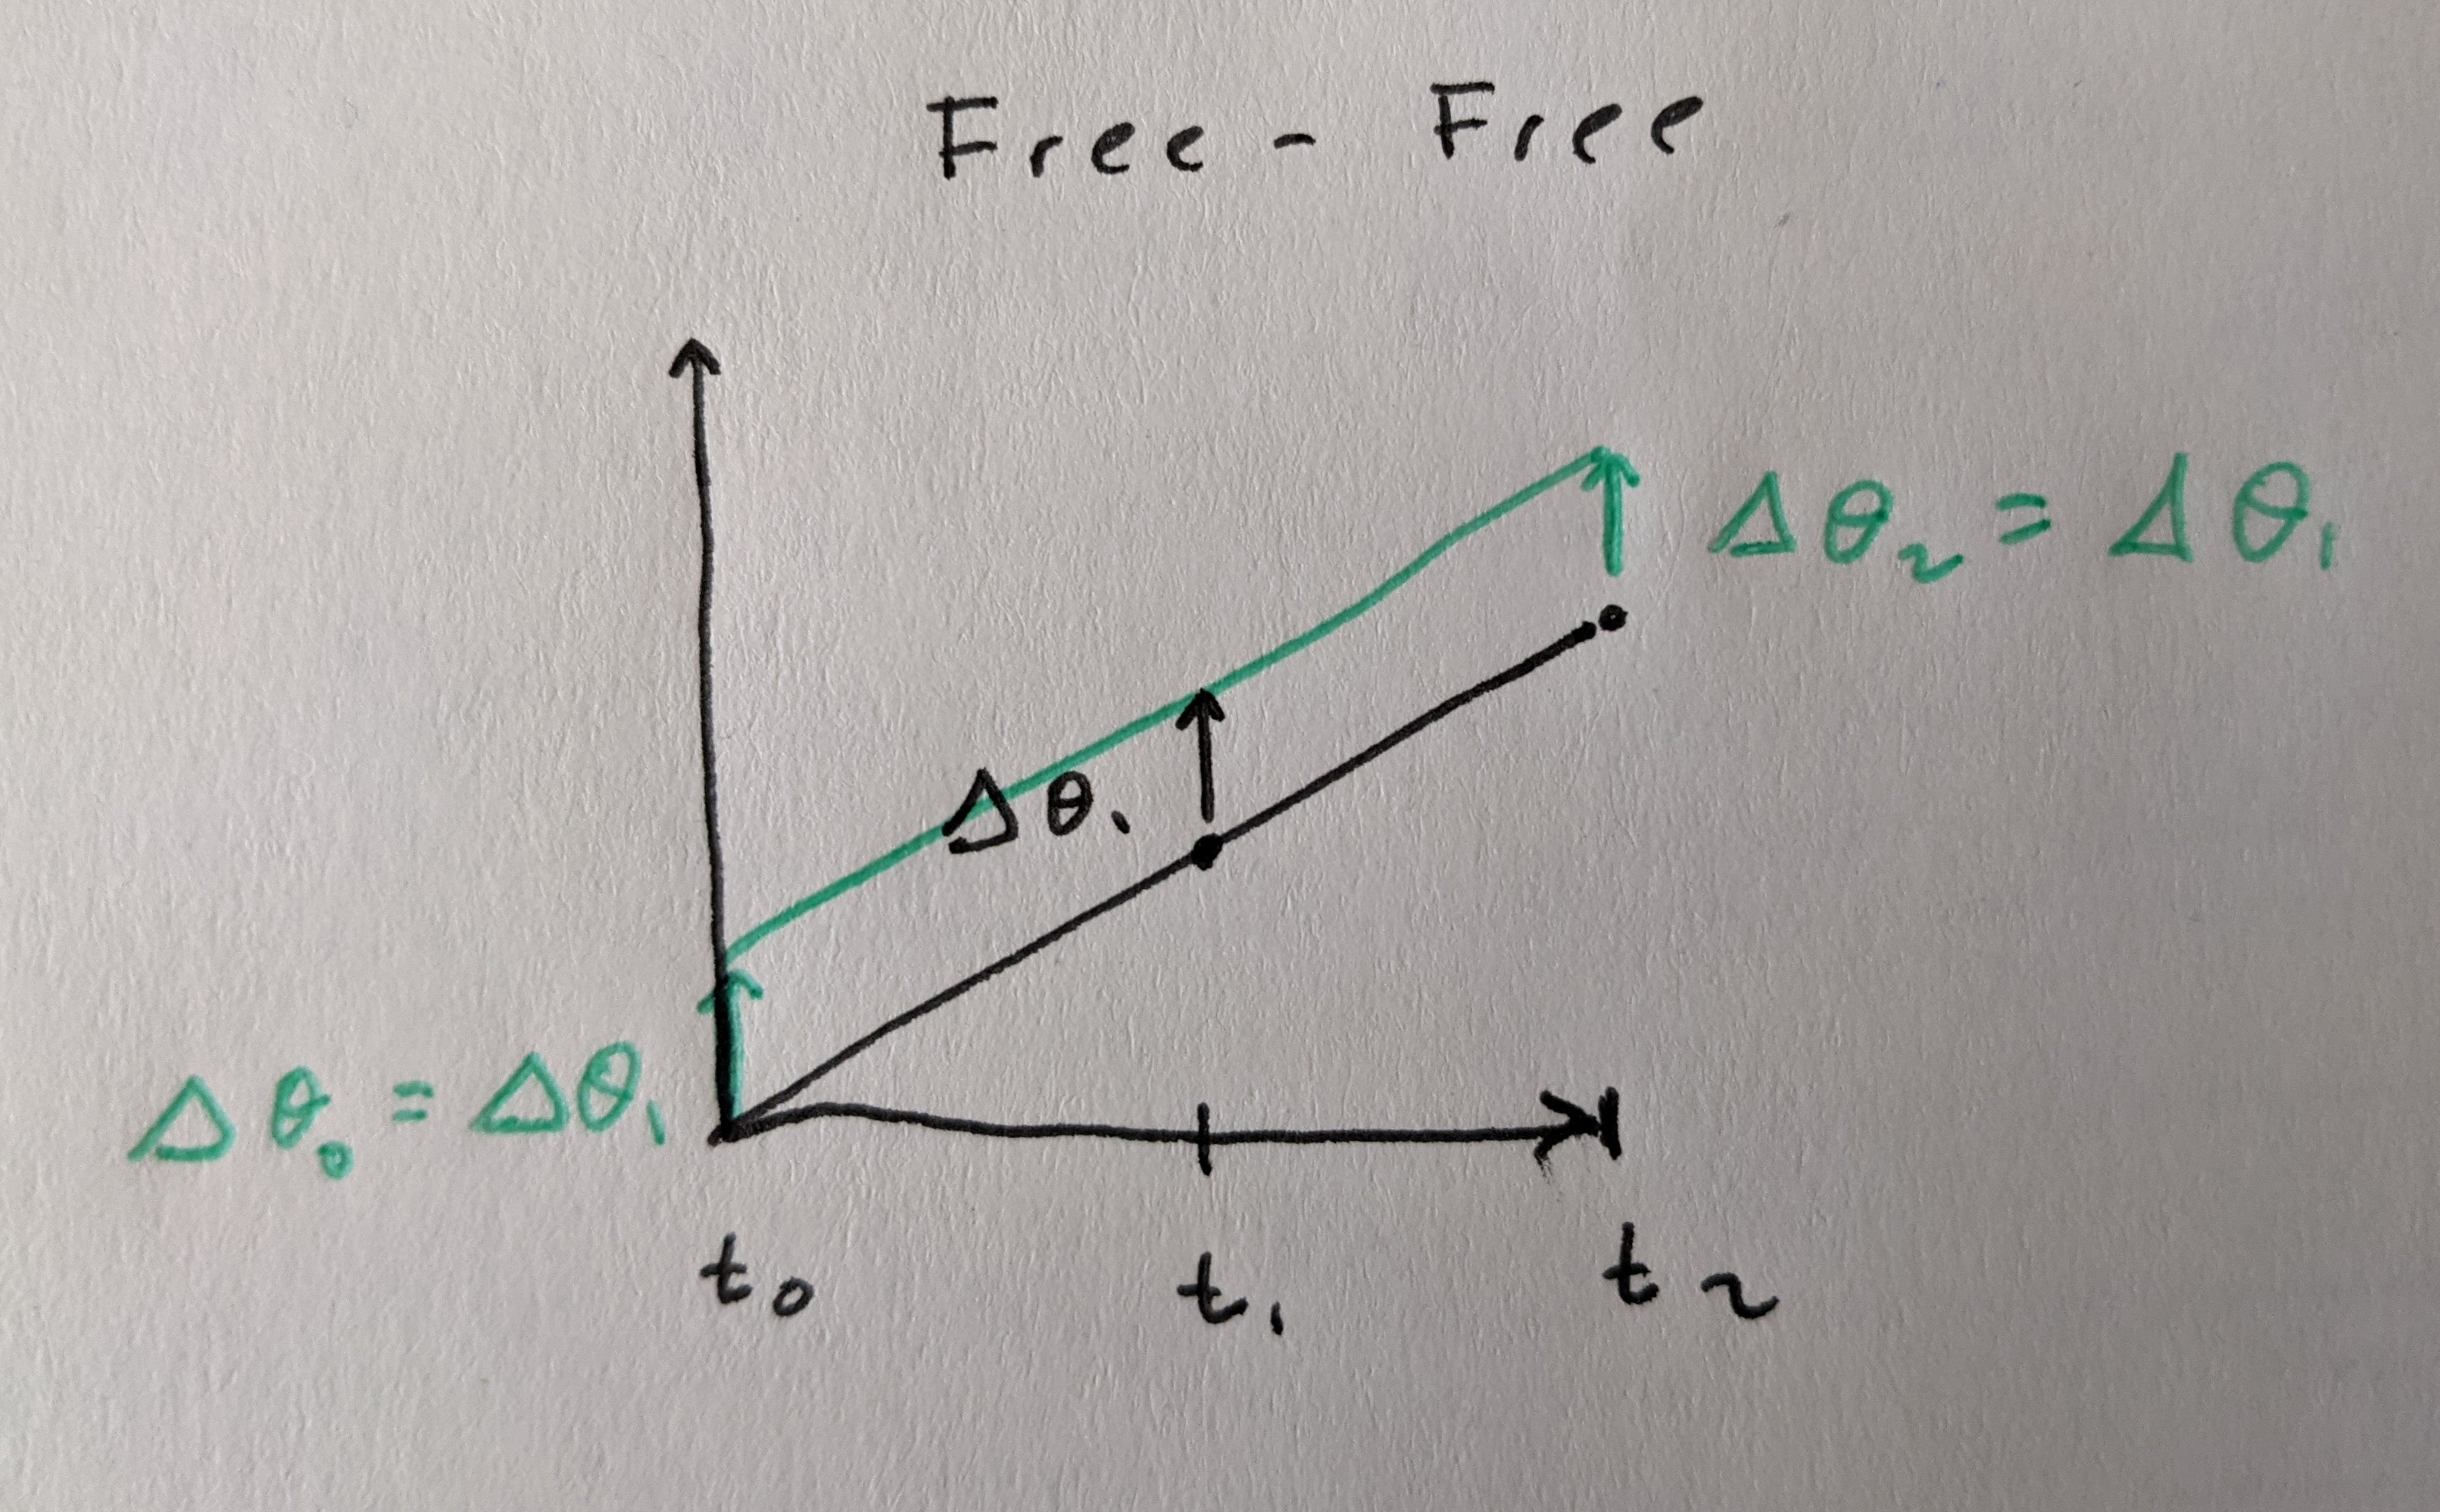 Free - Free
Δθ₂ = Δθ₁
Δθ₁
Δθ₀ = Δθ₁
t₀ t₁ t₂